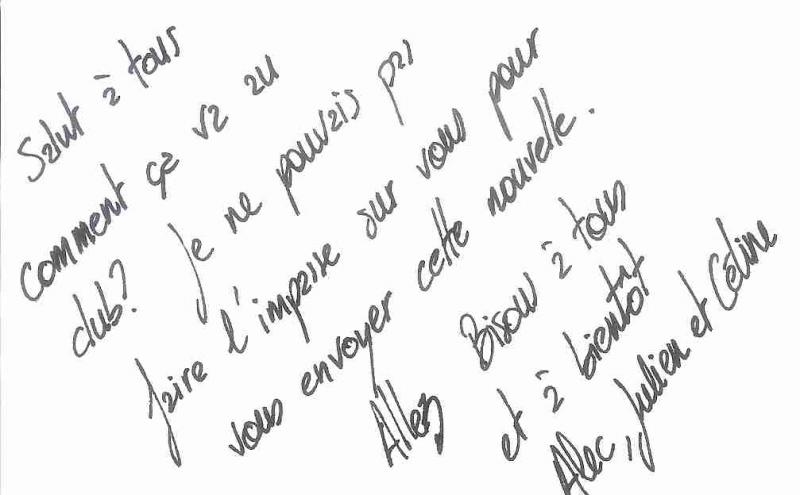 Salut à tous
comment ça va au
club? Je ne pouvais pas
faire l'impasse sur vous pour
vous envoyer cette nouvelle.
Allez Bisous à tous
et à bientôt
Alec, Julien et Céline